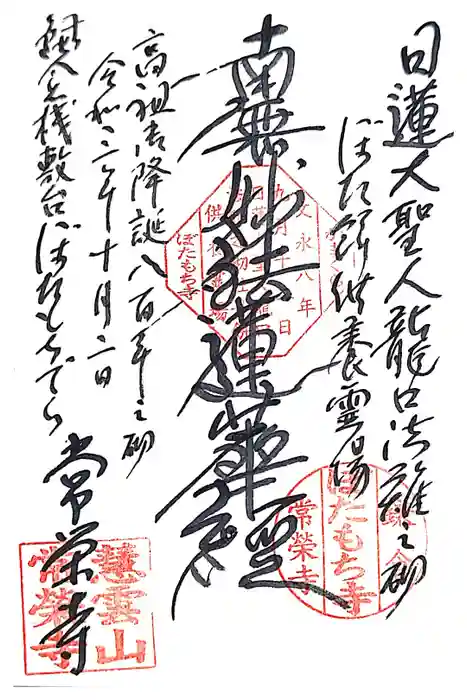 日蓮大聖人龍口法難之砌
ぼた餅供養霊場
南無妙法蓮華經
高祖御降誕八百年之砌
令和三年十月二日
鎌倉桟敷台ぼたもちでら
常栄寺
文永八年
ぼたもち寺
ぼたもち寺
常榮寺
慧雲山
常榮寺